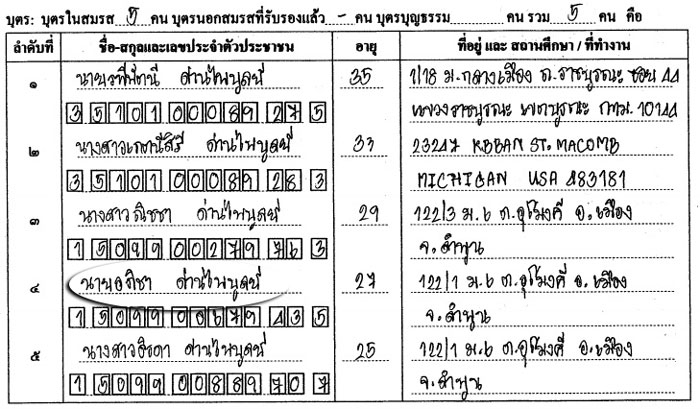 บุตร: บุตรในสมรส 5 คน บุตรนอกสมรสที่รับรองแล้ว - คน บุตรบุญธรรม คน รวม 5 คน คือ
ลำดับที่ ชื่อ-สกุลและเลขประจำตัวประชาชน อายุ ที่อยู่ และ สถานศึกษา / ที่ทำงาน
๑ ด่านไพบูลย์ 35 1/18 ม.กลางเมือง ถ.ราษฎร์บูรณะ ซอย 44
3 5101 00089 27 5 แขวงราษฎร์บูรณะ เขตราษฎร์บูรณะ กทม. 10144
๒ ด่านไพบูลย์ 33 23247 ST. MACOMB
3 5101 00089 28 3 MICHIGAN USA 483181
๓ นางสาวณิชชา ด่านไพบูลย์ 29 122/3 ม.6 ต.อุโมงค์ อ.เมือง
1 5099 00279 76 3 จ.ลำพูน
๔ นายอภิชา ด่านไพบูลย์ 27 122/1 ม.6 ต.อุโมงค์ อ.เมือง
1 5099 00679 43 5 จ.ลำพูน
๕ นางสาวธิดา ด่านไพบูลย์ 25 122/1 ม.6 ต.อุโมงค์ อ.เมือง
1 5099 00889 70 7 จ.ลำพูน